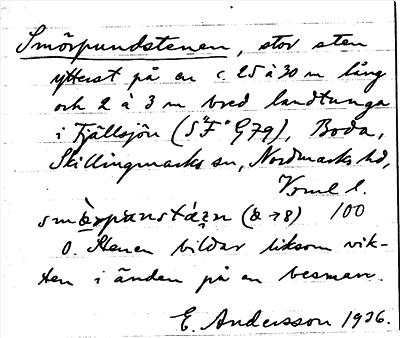 Smörpundstenen, stor sten
ytterst på en c. 25 à 30 m lång
och 2 à 3 m bred landtunga
i Fjällsjön (S"F" G79), Boda,
Skillingmarks sn, Nordmarks hd,
Vrml l.
100
0. Stenen bildar liksom vik-
ten i änden på en besman.
E. Andersson 1926.